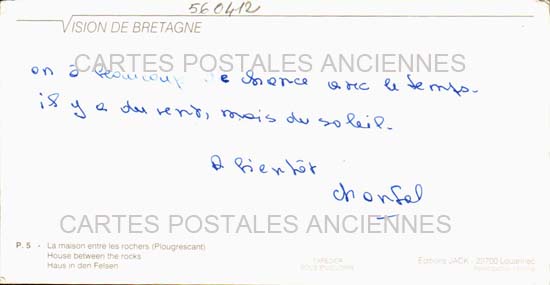 560412
VISION DE BRETAGNE
CARTES POSTALES ANCIENNES
on a beaucoup de chance avec le temps.
il y a du vent, mais du soleil.
A bientôt
Chantal
CARTES POSTALES ANCIENNES
P. 5 - La maison entre les rochers (Plougrescant)
House between the rocks
Haus in den Felsen
Editions JACK - 20700 Louannec